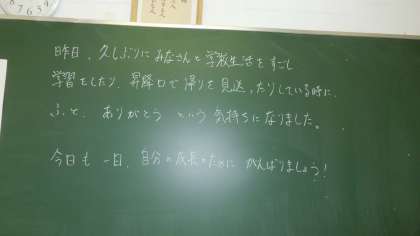 昨日、久しぶりにみなさんと学校生活をすごし
学習をしたり、昇降口で帰りを見送ったりしている時に、
ふと、ありがとう という気持ちになりました。
今日も一日、自分の成長のために がんばりましょう!